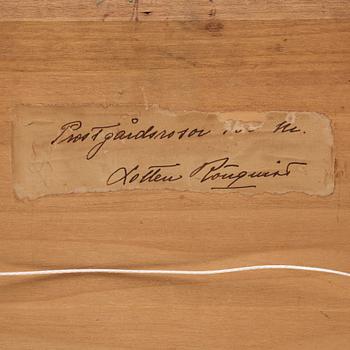 Prostgårdsrosor m.
Lotten Rönquist